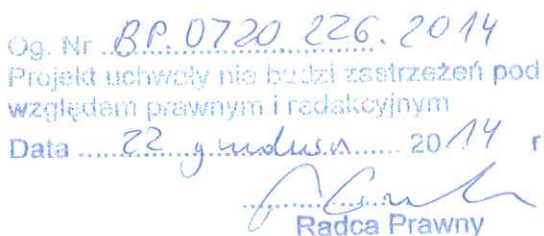 Og. Nr BP.0720.226.2014
Projekt uchwały nie budzi zastrzeżeń pod
względem prawnym i redakcyjnym
Data ........ 22 grudnia ...... 2014 r
Radca Prawny